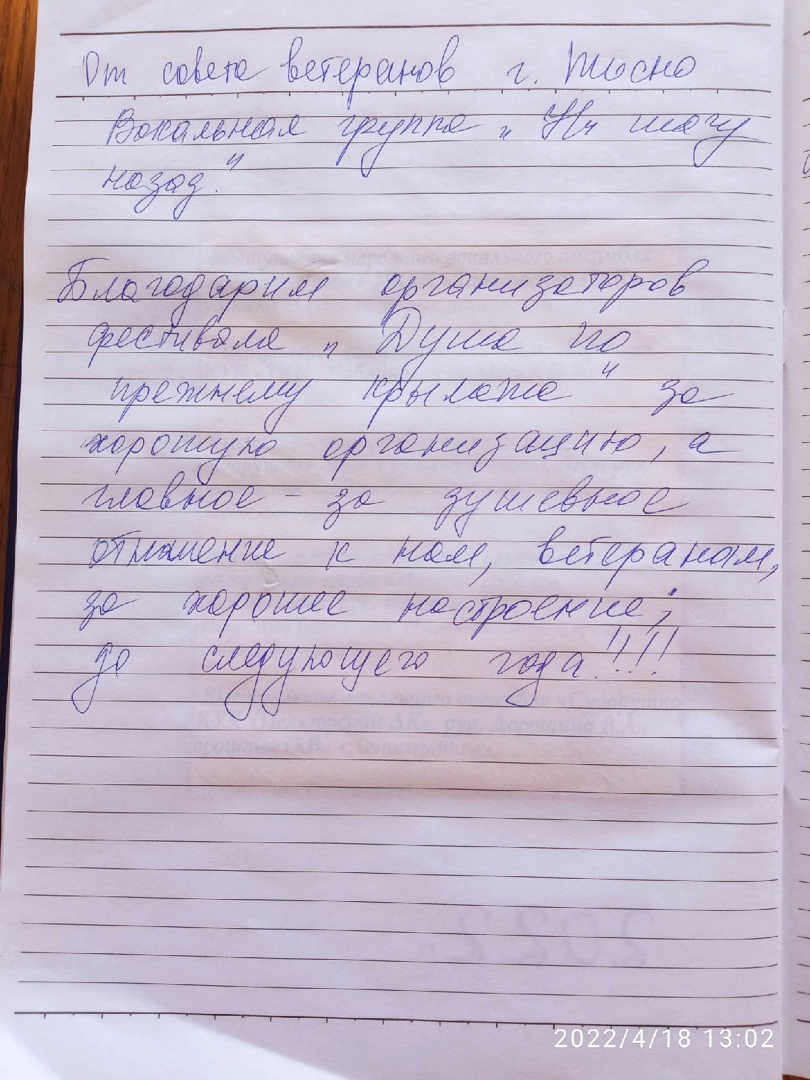 От совета ветеранов г. Тосно
Вокальная группа „Ни шагу
назад."
Благодарим организаторов
фестиваля „Душа по
прежнему крылата" за
хорошую организацию, а
главное – за душевное
отношение к нам, ветеранам,
за хорошее настроение;
до следующего года!!!!
2022
2022/4/18 13:02